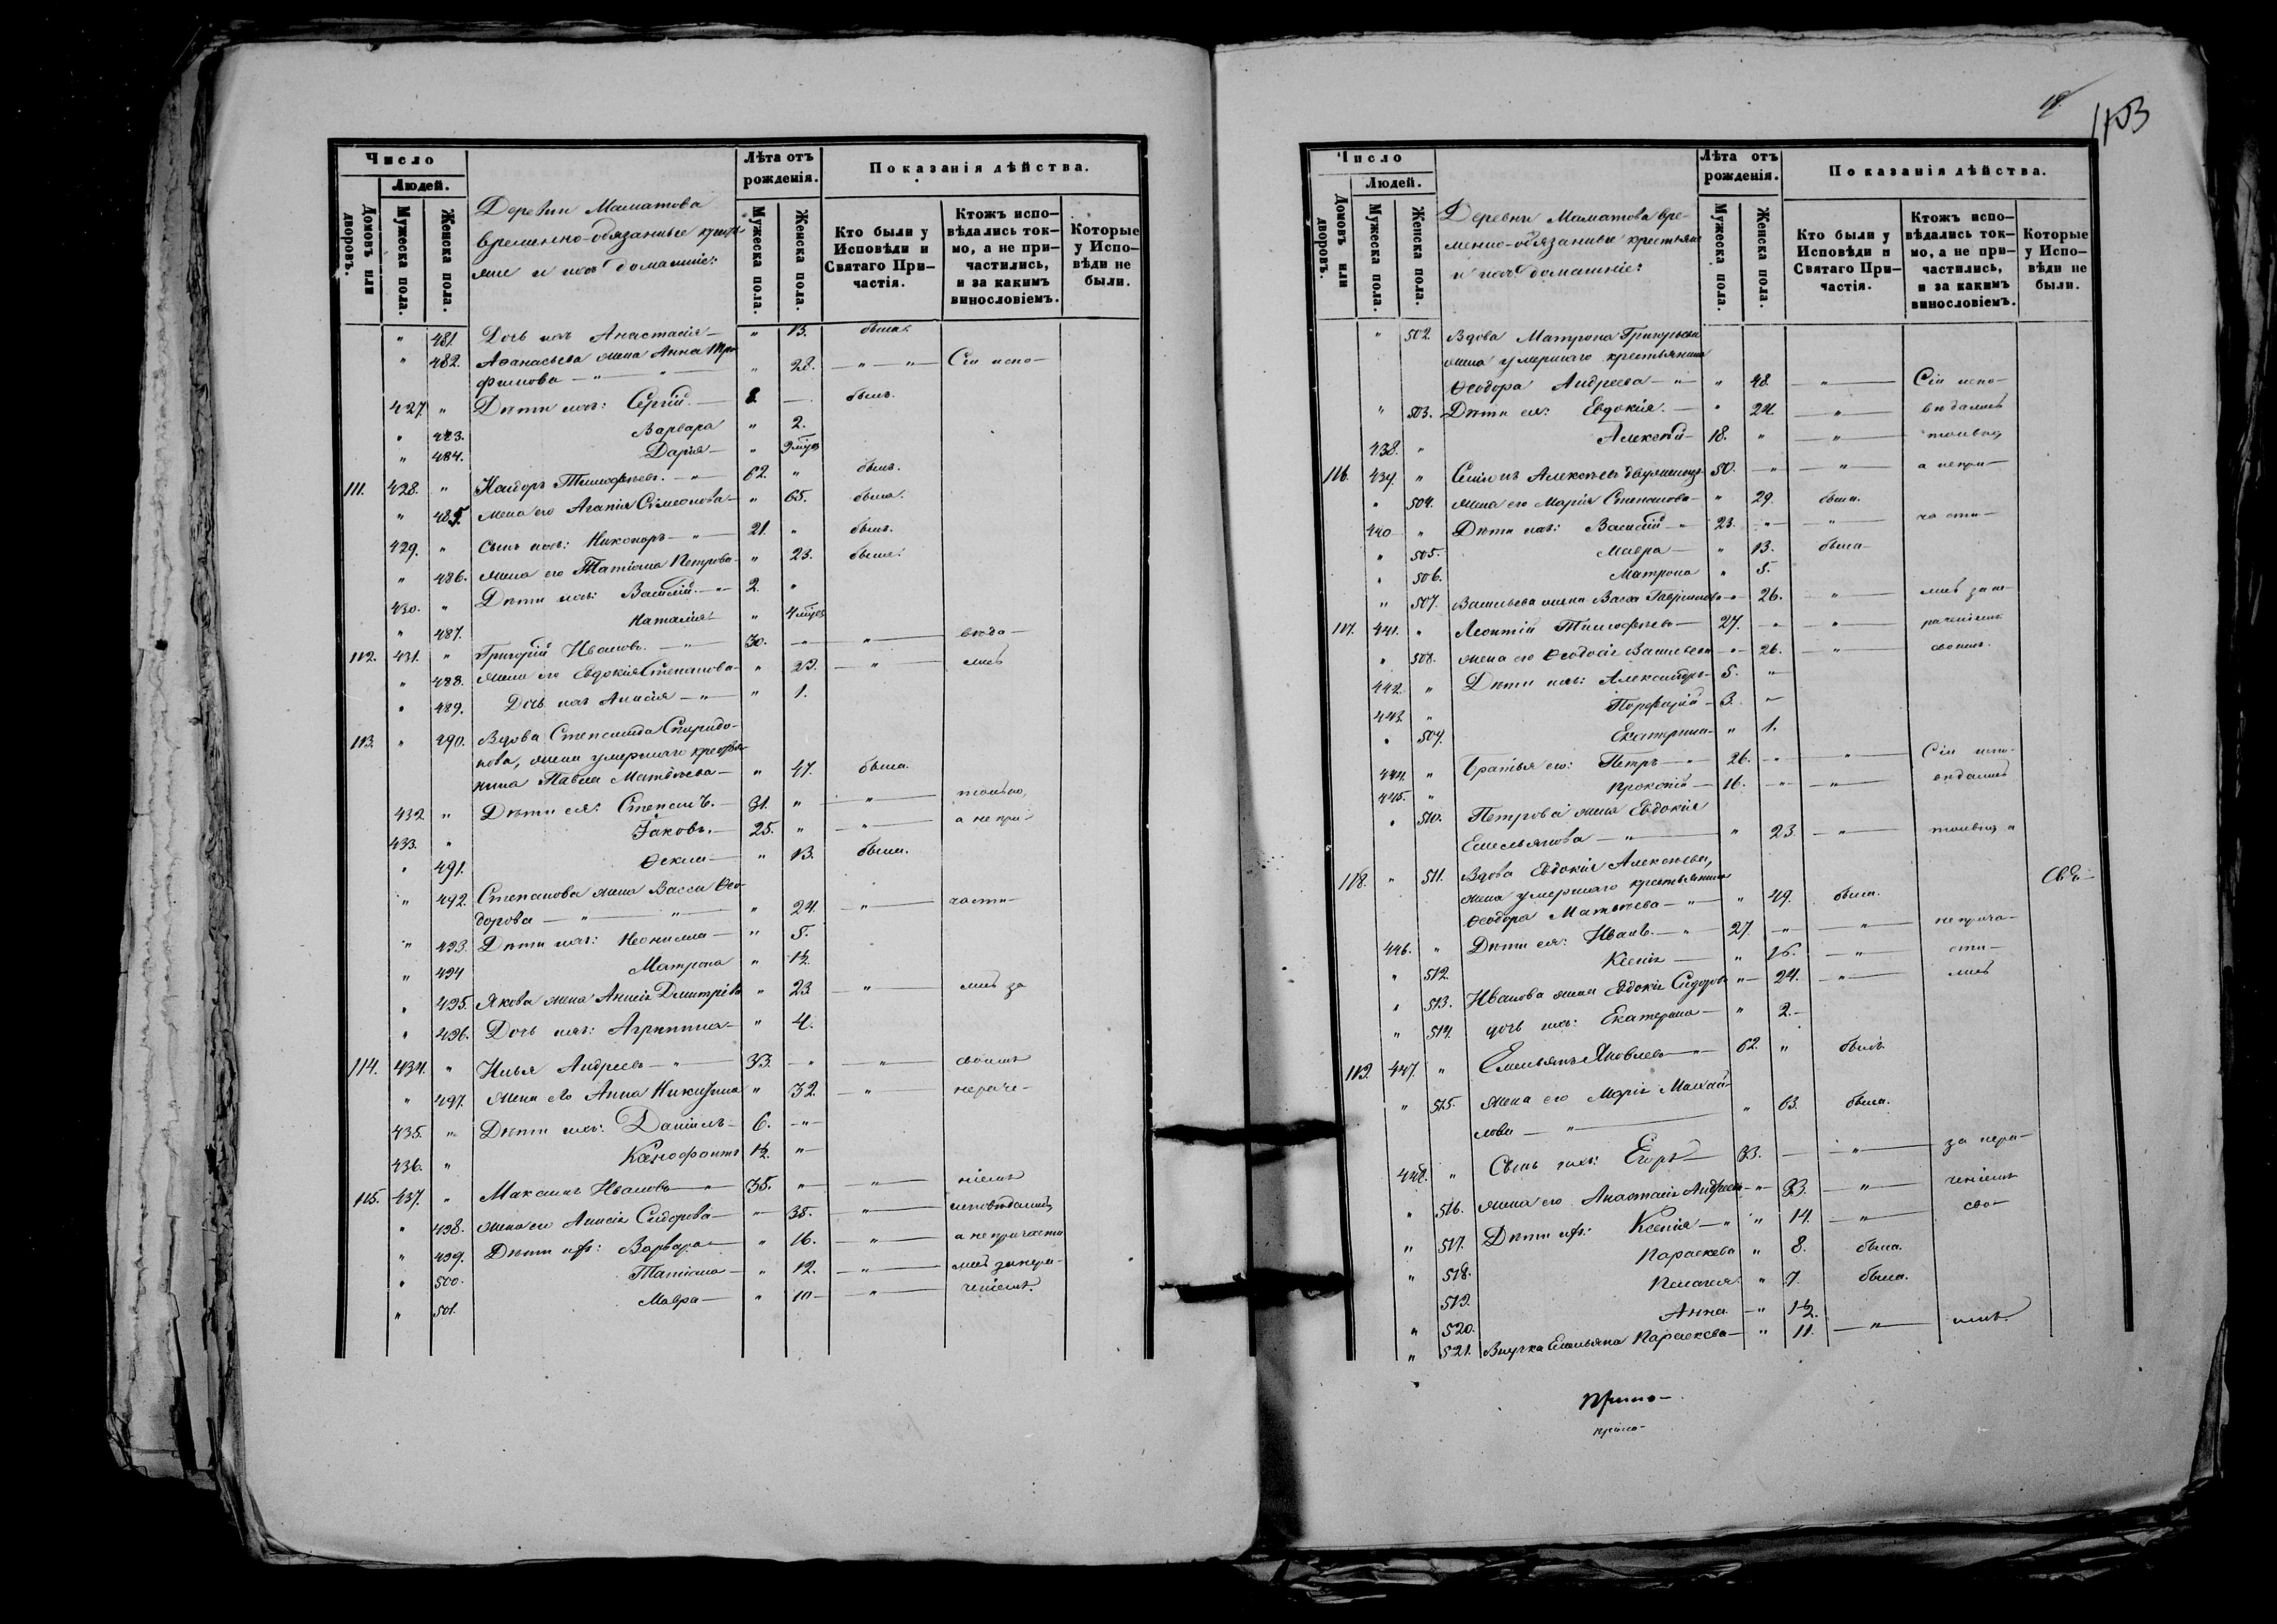 Число
Людей.
Домовъ или дворовъ.
Мужеска пола.
Женска пола.
Деревни Маматова
временно-обязанные крестья-
яне и ихъ домашніе:
Лѣта отъ рожденія.
Мужеска пола.
Женска пола.
Показанія дѣйства.
Кто были у Исповѣди и Святаго При-частія.
Ктожъ испо-вѣдались ток-мо, а не при-частились, и за какимъ винословіемъ.
Которые у Испо-вѣди не были.
" 481. Дочь ихъ Анастасія — " 13. была.
" 482. Аѳанасьева жена Анна Тро-
фимова — " — " 28. — " — " — Сіи испо-
427. " Дѣти ихъ: Сергій. — 8. — былъ.
" 483. Варвара " 2.
" 484. Дарья — "
111. 428. " Тимоѳеевъ. — " 62. " былъ.
" 485. жена его Агапія Сѵмеонова — " 65. была.
429. " Сынъ ихъ: Никаноръ — " — 21. " былъ.
" 486. жена его Татіана Петрова — " 23. была.
430. " Дѣти ихъ: Василій. — " 2. "
" 487. Наталія — "
112. 431. " Григорій Ивановъ. — " — 30. — " — " — вѣда-
" 488. жена его Евдокія Степанова — " 29. — " — лись
" 489. Дочь ихъ Анисія — " — " 1.
113. " 490. Вдова Степанида Спиридо-
нова, жена умершаго крестья-
нина Павла Матвѣева — " 47. была.
432. " Дѣти ея: Степанъ. — 31. " — " — только,
433. " Іаковъ. — 25. " — " — а не при-
" 491. Ѳекла — " 13. была.
" 492. Степанова жена Васса Ѳео-
дорова — " — " — " 24. — " — части-
" 493. Дѣти ихъ: Неонилла — " 5.
" 494 Матрона " 1½.
" 495. Якова жена Анисія Дмитріева " 23 — " — лись за
" 496. Дочь ихъ: Агриппина — " 4.
114. 434. " Илья Андреевъ — " — 33. — " — " — своимъ
" 497. Жена его Анна Никитина " 32. — " — нераче-
435. " Дѣти ихъ: Даніилъ — 6. — " —
436. " Ксенофонтъ 1½. " —
115. 437. " Максимъ Ивановъ — " 35. " — " — ніемъ
" 498. жена его Анисія Сидорова — " — 38. — " — исповѣдались,
" 499. Дѣти ихъ: Варвара — " 16. — " — а не причасти
" 500. Татіана — " 12. — " — лись за нера-
" 501. Мавра — " 10 — — " — ченіемъ.
153
Число
Людей.
Домовъ или дворовъ.
Мужеска пола.
Женска пола.
Деревни Маматова вре-
менно-обязанные крестьяне
и ихъ домашніе:
Лѣта отъ рожденія.
Мужеска пола.
Женска пола.
Показанія дѣйства.
Кто были у Исповѣди и Святаго При-частія.
Ктожъ испо-вѣдались ток-мо, а не при-частились, и за какимъ винословіемъ.
Которые у Испо-вѣди не были.
" 502. Вдова Матрона Григорьева
жена умершаго крестьянина
Ѳеодора Андреева — " — " 48. — " — Сіи испо-
" 503. Дѣти ея: Евдокія. — " 24. — " — вѣдались
438. " Алексѣй — 18. " — " — только,
116. 439. " Алексѣевъ 50. — " — " — а не при-
" 504. жена его Марія Степанова — " 29. была.
440 " Дѣти ихъ: Василій — " 23. — " — " — части-
" 505. Мавра — " 13. была —
" 506. Матрона " 5.
" 507. Васильева жена Васса " 26. — " — лись за не
117. 441. " Леонтій Тимоѳеевъ — 27. — " — " — раченіемъ
" 508. жена его Ѳеодосія Васильева — " — 26. — " — своимъ.
442. " Дѣти ихъ: Александръ — 5. " —
443. " Порфирій — 3. " —
" 509. Екатерина — " 1.
444. " Братья его: Петръ — " 26. — " — " — Сіи испо-
445. " Прокопій — 16. — " — " — вѣдались
" 510. Петрова жена Евдокія
Емельянова — " — " 23. — " — только а
118. " 511. Вдова Евдокія Алексѣева,
жена умершаго крестьянина
Ѳеодора Матвѣева — " — " 49. была.
446. " Дѣти ея: Иванъ. — " — 27. — " — " — не прича-
" 512. Ксенія — " 16. — " — сти-
" 513. Иванова жена Евдокія Сидорова " — 24. — " — лись
" 514. дочь ихъ: Екатерина — " 2. —
119. 447. " Емельянъ Яковлевъ — " — 62. " былъ.
" 515. Жена его Марія Михай-
лова — " — " 63. была.
448. " Сынъ ихъ: Егоръ — 33. — " — за нера-
" 516. жена его Анастасія Андреева — " — 33. — " — ченіемъ
" 517. Дѣти ихъ: Ксенія — " " 14. — " — сво-
" 518. Параскева " 8. была.
519. Пелагея " 7. была.
" 520. Анна — " 1½.
" 521. Внучка Емельяна Параскева — " 11. — " — имъ.